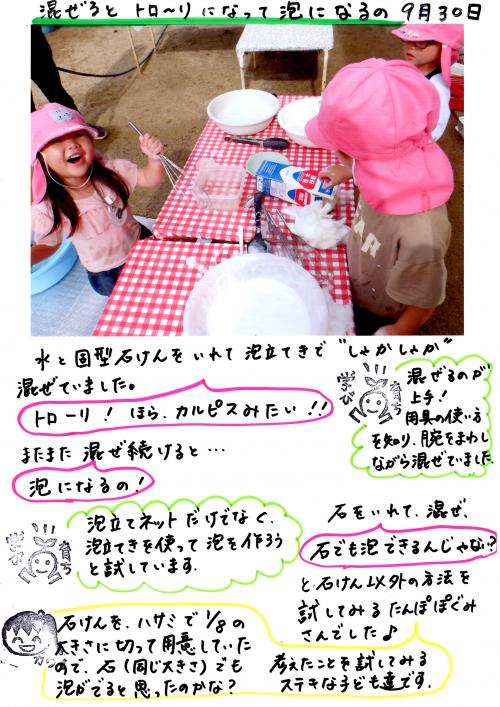 混ぜると トロ～リ になって 泡になるの 9月30日
水と固型石けんをいれて 泡立てきで "しゃかしゃか"
混ぜていました。
トロ～リ！ ほら、カルピスみたい！！
またまた 混ぜ続けると…
泡になるの！
学び 育ち
混ぜるのが
上手！
用具の使い方
を知り、腕をまわし
ながら混ぜていました。
学び 育ち
泡立てネットだけでなく、
泡立てきを使って 泡を作ろう
と試しています。
石をいれて、混ぜ、
石でも泡できるんじゃない？
と石けん以外の方法を
試してみる たんぽぽぐみ
さんでした♪
から
石けんを、ハサミで 1/8の
大きさに切って用意していた
ので、石（同じ大きさ）でも
泡がでると思ったのかな？
考えたことを試してみる
ステキな子ども達です。